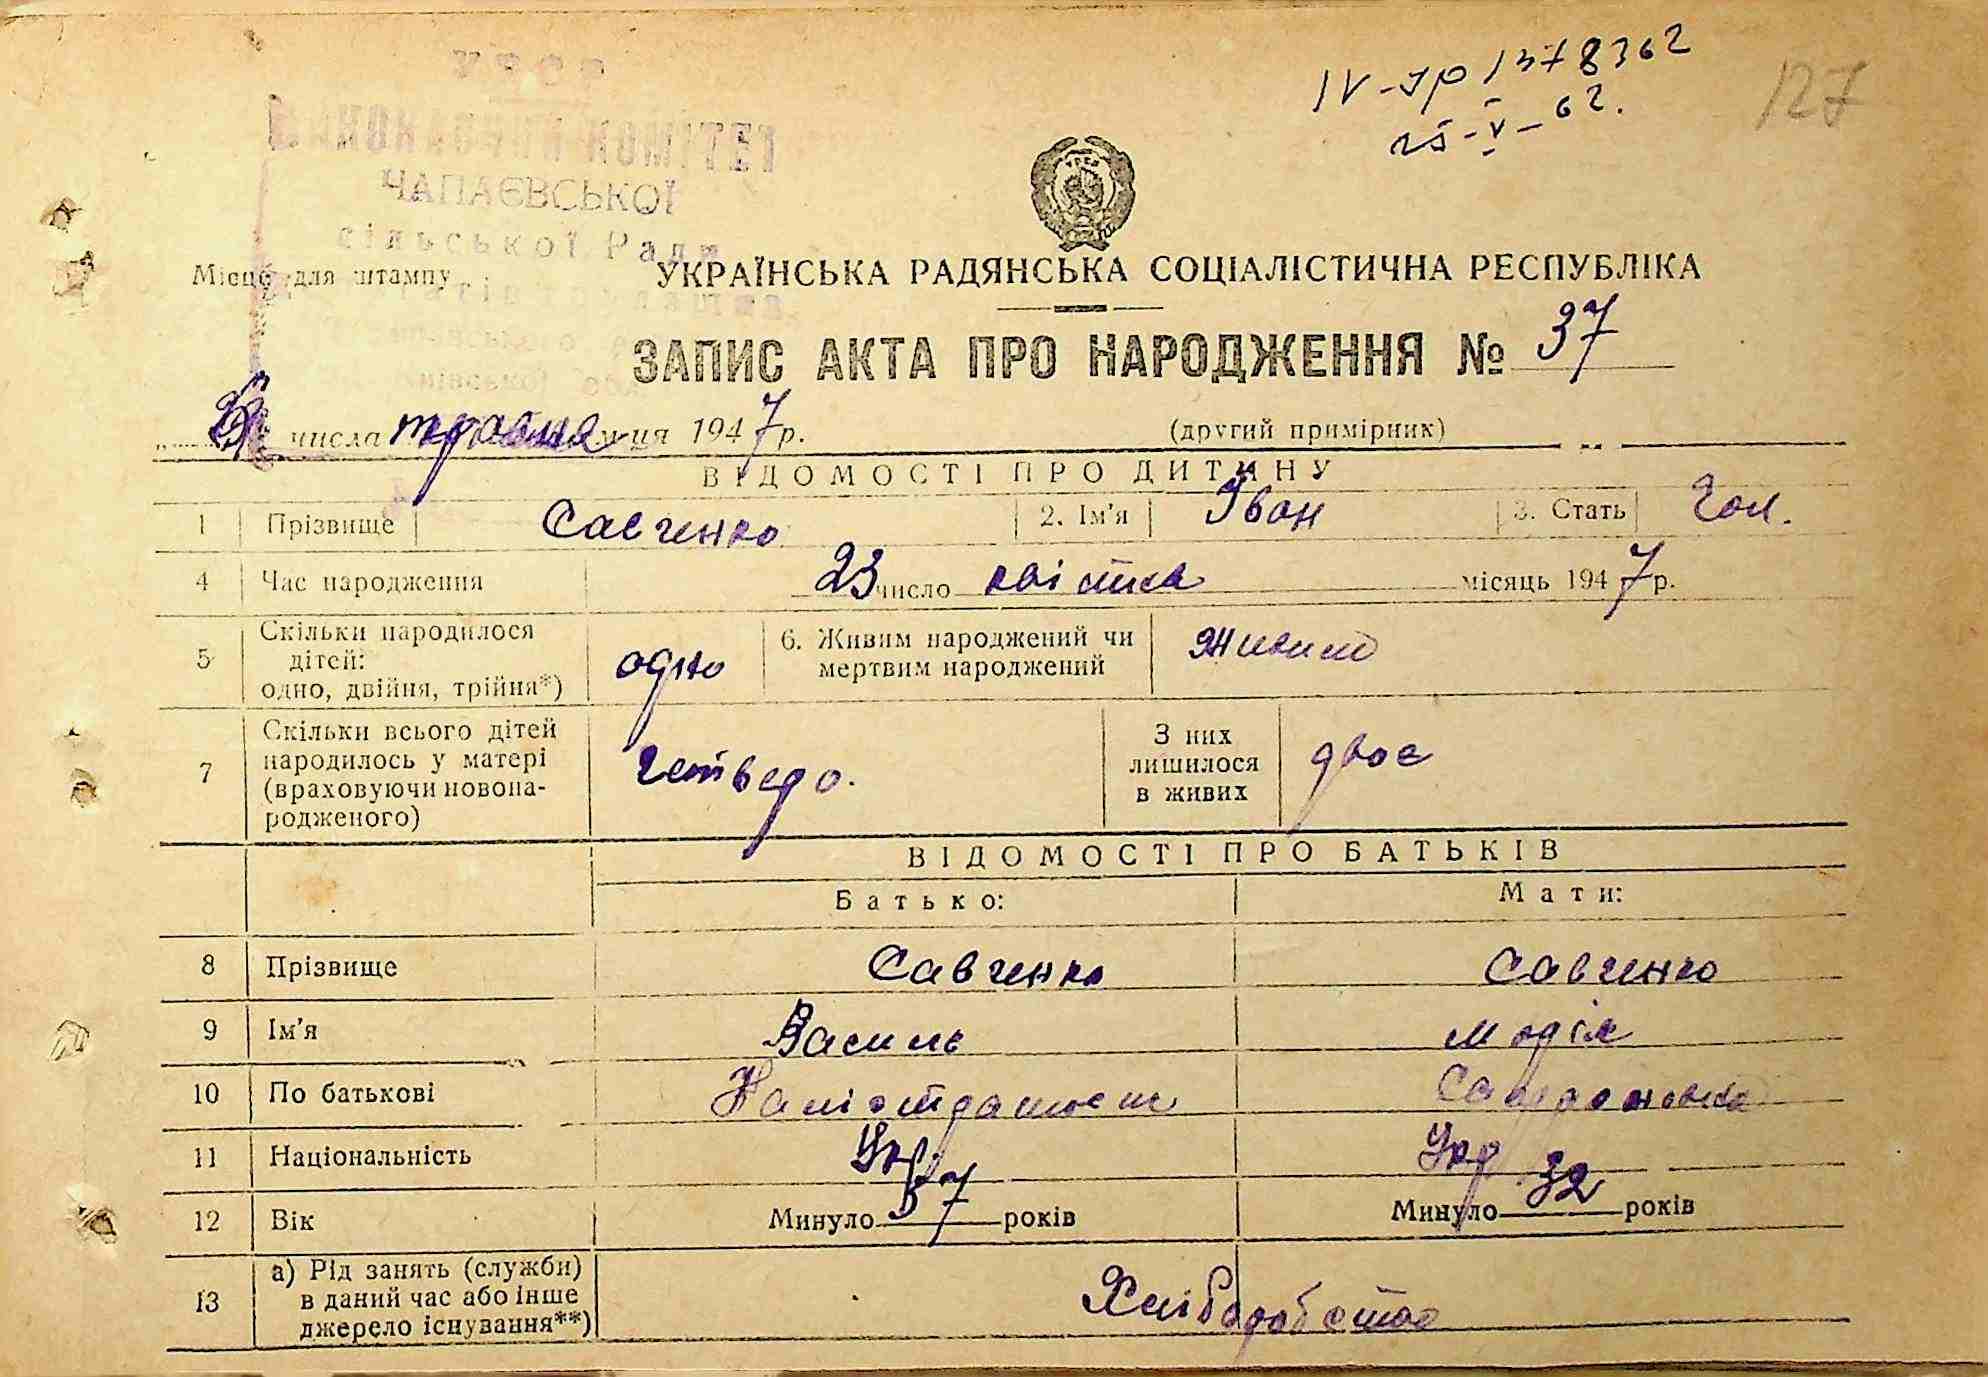 IV-УР 1378362
25-V-62.
127
УРСР
ВИКОНАВЧИЙ КОМІТЕТ
ЧАПАЄВСЬКОЇ
сільської Ради
Місце для штампу
УКРАЇНСЬКА РАДЯНСЬКА СОЦІАЛІСТИЧНА РЕСПУБЛІКА
ЗАПИС АКТА ПРО НАРОДЖЕННЯ № 37
числа травня м-ця 1947 р.
(другий примірник)
ВІДОМОСТІ ПРО ДИТИНУ
1 Прізвище Савченко 2. Ім'я Іван 3. Стать Чол.
4 Час народження 23 число квітня місяць 1947 р.
5 Скільки народилося дітей: одно, двійня, трійня*) одно 6. Живим народжений чи мертвим народжений живим
7 Скільки всього дітей народилось у матері (враховуючи новона-родженого) четверо. З них лишилося в живих двоє
ВІДОМОСТІ ПРО БАТЬКІВ
Батько: Мати:
8 Прізвище Савченко Савченко
9 Ім'я Василь Марія
10 По батькові
11 Національність Укр. Укр
12 Вік Минуло 37 років Минуло 32 років
13 а) Рід занять (служби) в даний час або інше джерело існування**) Хлібороб